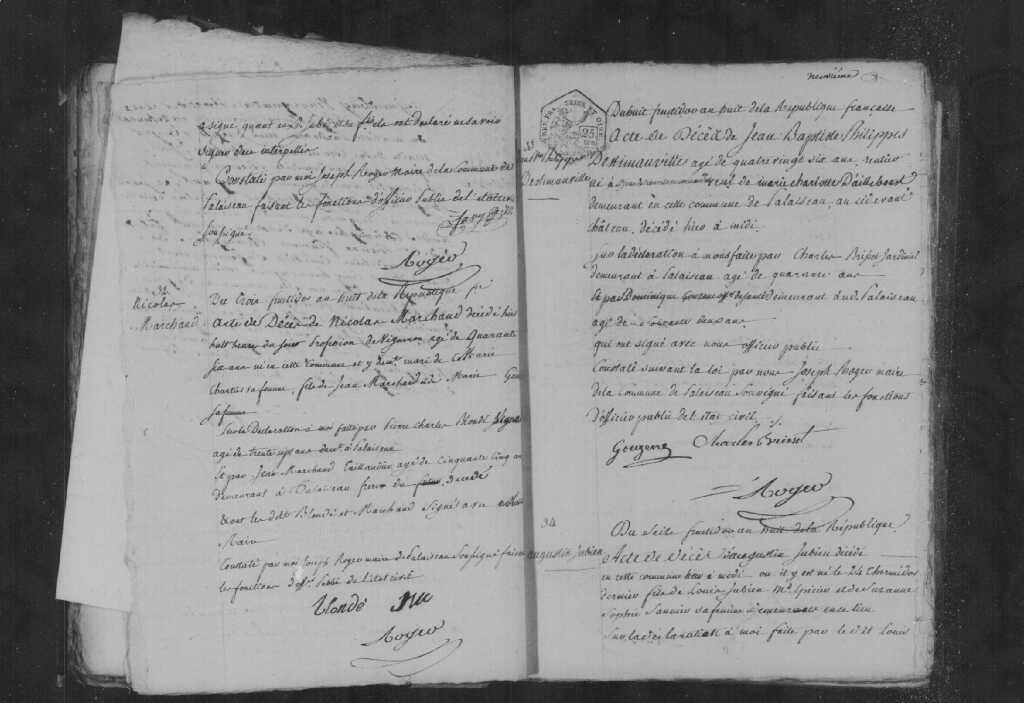 signé quant
Constaté par moi Joseph Roger Maire de la Commune de
Palaiseau faisant les fonctions d'officier Public de l'état civil
soussigné
Roger
32
Nicolas
Marchand
Du trois fructidor an huit de la République
Acte de Décès de Nicolas Marchand décédé hier
huit heures du soir Profession de Vigneron agé de quarante
six ans né en cette Commune et y demt. mari de Marie
Charles sa femme, fils de Jean Marchand et de Marie
sa femme
Sur la Déclaration à moi faite par Pierre Charles Blondé
agé de trente sept ans demt. à Palaiseau
Et par Jean Marchand Taillandier agé de Cinquante Cinq ans
demeurant à Palaiseau frere du décédé
Et ont les dits Blondé et Marchand Signés avec
Maire
Constaté par moi Joseph Roger maire de Palaiseau Soussigné faisant
les fonctions d'offr. Public de l'état civil
Blondé
Roger
neuvième
25
33
Philippes
Destimauville
Du huit fructidor an huit de la République française
Acte de Décès de Jean Baptiste Philippes
Destimauville agé de quatre vingt six ans rentier
né à veuf de marie charlotte Dailleboust
demeurant en cette commune de Palaiseau, au cidevant
château, décédé hier à midi.
Sur la déclaration à nous faite par Charles Brisset Jardinier
demeurant à Palaiseau agé de quarante ans
Et par Dominique Gouzene offr. de santé demeurant audt. Palaiseau
agé de soixante deux ans
qui ont signé avec nous officier public
Constaté suivant la loi par nous Joseph Roger maire
de la Commune de Palaiseau Soussigné faisant les fonctions
d'officier public de l'état civil.
Gouzene Charles Brisset
Roger
34
augustin Jubien
Du Seize fructidor an huit de la République
Acte de décès d'augustin Jubien décédé
en cette commune hier à midi où il y est né le 24 Thermidor
dernier fils de Louis Jubien Md. Epicier et de Suzanne
Sophie Sa femme demeurant en ce lieu
Sur la déclaration à moi faite par le dit Louis